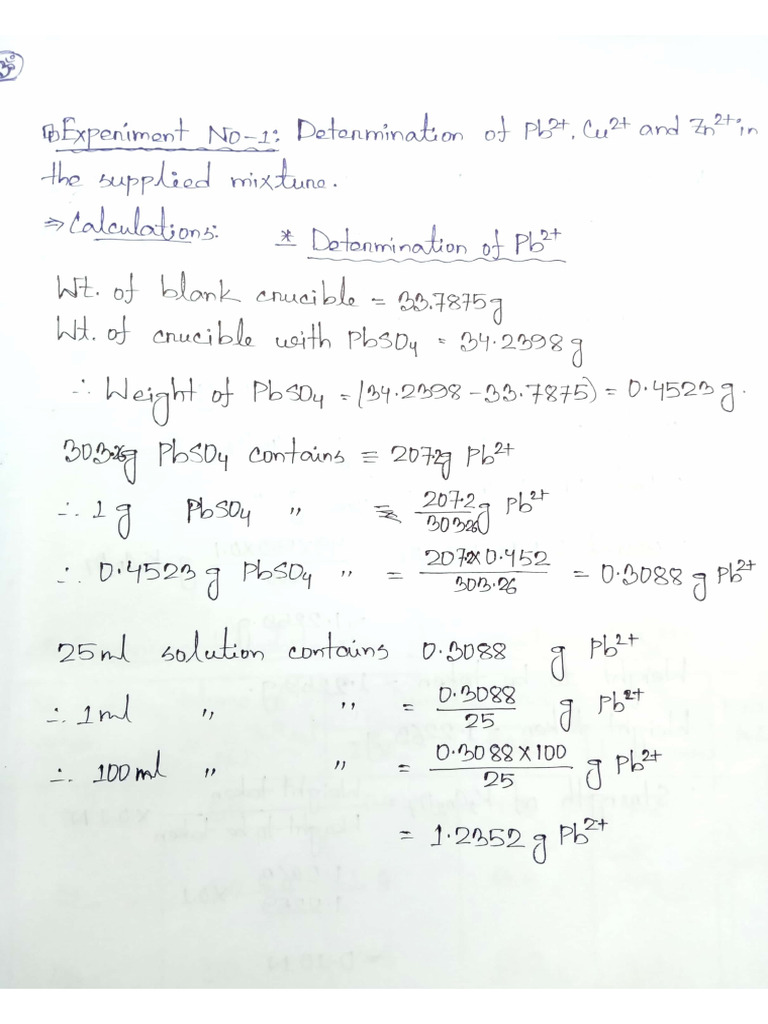 ॐ
Experiment No-1: Determination of Pb²⁺, Cu²⁺ and Zn²⁺ in
the supplied mixture.
⇒ Calculations: * Determination of Pb²⁺
Wt. of blank crucible = 33.7875g
Wt. of crucible with PbSO₄ = 34.2398g
∴ Weight of PbSO₄ = (34.2398 - 33.7875) = 0.4523g.
303.26g PbSO₄ contains ≡ 207.2g Pb²⁺
∴ 1g PbSO₄ " ≡ 207.2/303.26 g Pb²⁺
∴ 0.4523g PbSO₄ " = 207.2×0.452/303.26 = 0.3088 g Pb²⁺
25ml solution contains 0.3088 g Pb²⁺
∴ 1ml " " = 0.3088/25 g Pb²⁺
∴ 100ml " " = 0.3088×100/25 g Pb²⁺
= 1.2352 g Pb²⁺